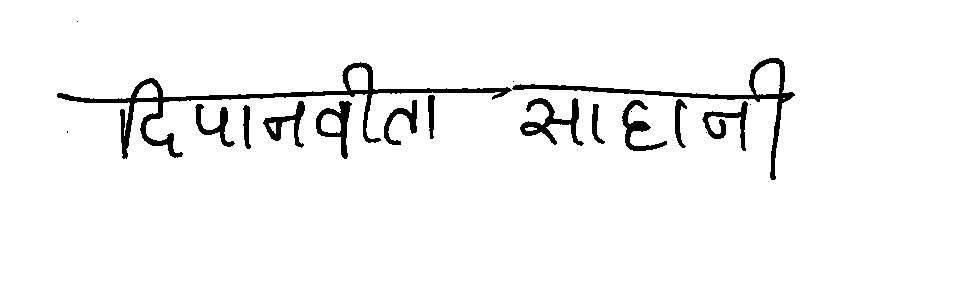 दिपानवीता साहानी